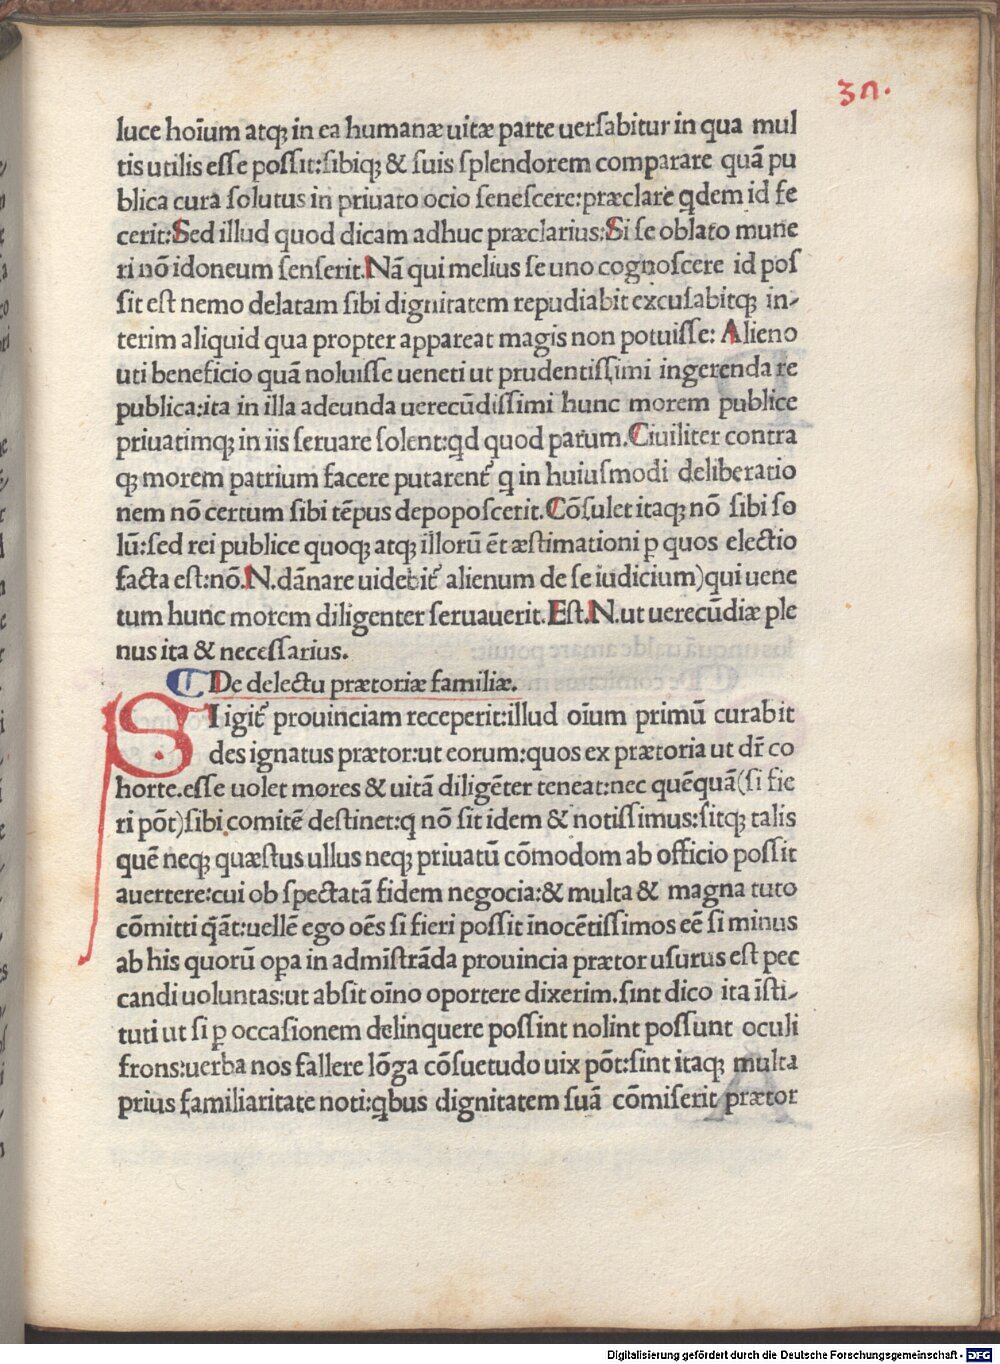 3n.
luce hoīum atqꝫ in ea humanæ uitæ parte uersabitur in qua mul
tis utilis esse possit:sibiqꝫ & suis splendorem comparare quā pu
blica cura solutus in priuato ocio senescere:præclare qdem id fe
cerit:Sed illud quod dicam adhuc præclarius:Si se oblato mune
ri nō idoneum senserit.Nā qui melius se uno cognoscere id pos
sit est nemo delatam sibi dignitatem repudiabit excusabitqꝫ in-
terim aliquid qua propter appareat magis non potuisse: Alieno
uti beneficio quā noluisse ueneti ut prudentissimi ingerenda re
publica:ita in illa adeunda uerecūdissimi hunc morem publice
priuatimqꝫ in iis seruare solent:qd quod parum.Ciuiliter contra
qꝫ morem patrium facere putarent᷑ q in huiusmodi deliberatio
nem nō certum sibi tēpus depoposcerit.Cōsulet itaqꝫ nō sibi so
lū:sed rei publice quoqꝫ atqꝫ illorū ēt æstimationi ꝑ quos electio
facta est:nō.N.dānare uidebit᷑ alienum de se iudicium)qui uene
tum hunc morem diligenter seruauerit.Est.N.ut uerecūdiæ ple
nus ita & necessarius.
De delectu prætoriæ familiæ.
SI igit᷑ prouinciam receperit:illud oīum primū curabit
des ignatus prætor:ut eorum:quos ex prætoria ut dr̄ co
horte.esse uolet mores & uitā diligēter teneat:nec quēquā(si fie
ri pōt)sibi comitē destinet:q nō sit idem & notissimus:sitqꝫ talis
quē neqꝫ quæstus ullus neqꝫ priuatū cōmodom ab officio possit
auertere:cui ob spectatā fidem negocia:& multa & magna tuto
cōmitti q̄āt:uellē ego oēs si fieri possit īnocētissimos eē si minus
ab his quorū oꝑa in admīstrāda prouincia prætor usurus est pec
candi uoluntas:ut absit oīno oportere dixerim.sint dico ita īsti-
tuti ut si ꝑ occasionem delinquere possint nolint possunt oculi
frons:uerba nos fallere lōga cōsuetudo uix pōt:sint itaqꝫ multa
prius familiaritate noti:qbus dignitatem suā cōmiserit prætor
Digitalisierung gefördert durch die Deutsche Forschungsgemeinschaft - DFG